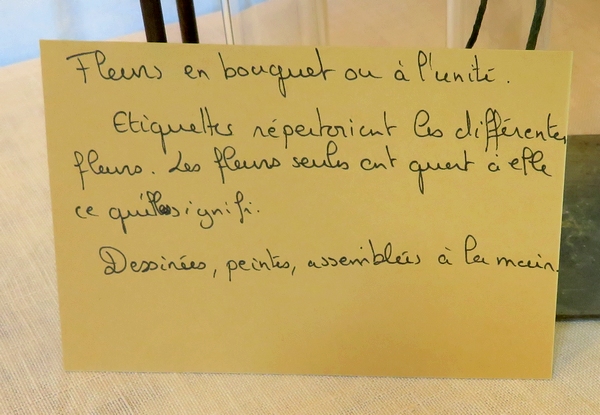 Fleurs en bouquet ou à l'unité.
Etiquettes répertorient les différentes
fleurs. Les fleurs seules ont quant à elle
ce qu'elles signifi.
Dessinées, peintes, assemblées à la main.